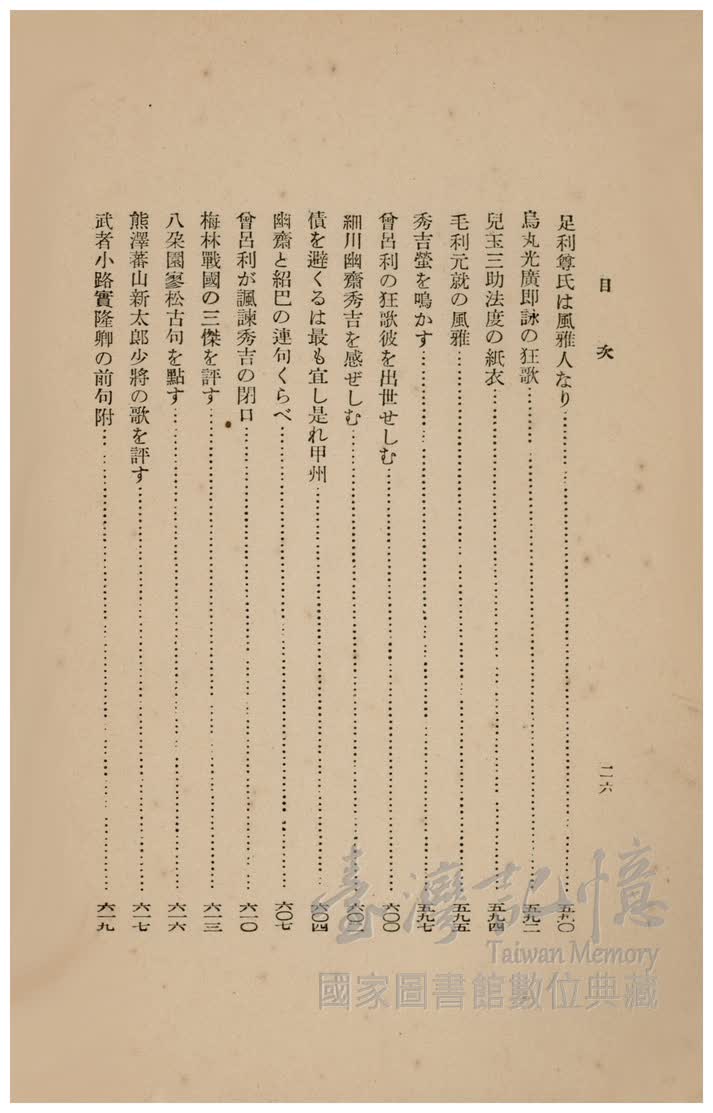 目次
二六
足利尊氏は風雅人なり……五九〇
烏丸光廣即詠の狂歌……五九二
兒玉三助法度の紙衣……五九四
毛利元就の風雅……五九五
秀吉螢を鳴かす……五九七
曾呂利の狂歌彼を出世せしむ……六〇〇
細川幽齋秀吉を感ぜしむ……六〇二
債を避くるは最も宜し是れ甲州……六〇四
幽齋と紹巴の連句くらべ……六〇七
曾呂利が諷諫秀吉の閉口……六一〇
梅林戰國の三傑を評す……六一三
八朶園寥松古句を點す……六一六
熊澤蕃山新太郎少將の歌を評す……六一七
武者小路實隆卿の前句附……六一九
臺灣記憶
Taiwan Memory
國家圖書館數位典藏